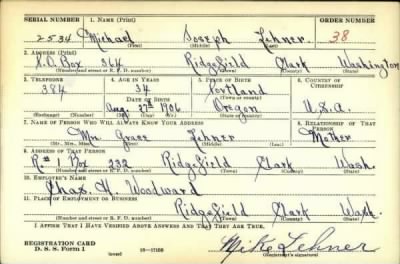 SERIAL NUMBER 1. NAME (Print) ORDER NUMBER
2534 Michael Joseph Lehner 38
(First) (Middle) (Last)
2. ADDRESS (Print)
P.O. Box 364 Ridgefield Clark Washington
(Number and street or R. F. D. number) (Town) (County) (State)
3. TELEPHONE 4. AGE IN YEARS 5. PLACE OF BIRTH 6. COUNTRY OF CITIZENSHIP
384 34 Portland
DATE OF BIRTH (Town or county)
Aug 27th 1906 Oregon U.S.A.
(Exchange) (Number) (Mo.) (Day) (Yr.) (State or country)
7. NAME OF PERSON WHO WILL ALWAYS KNOW YOUR ADDRESS 8. RELATIONSHIP OF THAT PERSON
Mrs. Grace Lehner Mother
(Mr., Mrs., Miss) (First) (Middle) (Last)
9. ADDRESS OF THAT PERSON
R. #1 Box 232 Ridgefield Clark Wash.
(Number and street or R. F. D. number) (Town) (County) (State)
10. EMPLOYER'S NAME
Chas. H. Woodward
11. PLACE OF EMPLOYMENT OR BUSINESS
Ridgefield Clark Wash.
(Number and street or R. F. D. number) (Town) (County) (State)
I AFFIRM THAT I HAVE VERIFIED ABOVE ANSWERS AND THAT THEY ARE TRUE.
REGISTRATION CARD
D. S. S. Form 1 (over) Mike Lehner
(Registrant's signature)